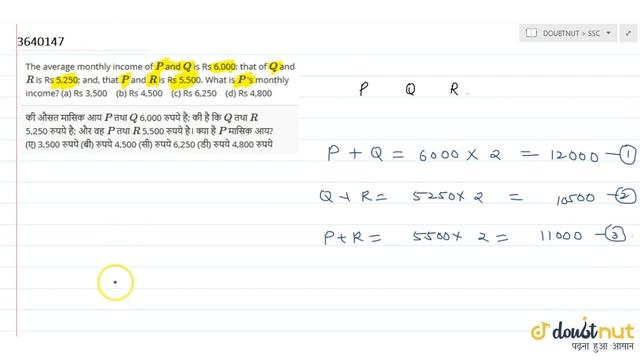 DOUBTNUT > SSC
3640147
The average monthly income of P and Q is Rs 6,000; that of Q and
R is Rs 5,250; and, that P and R is Rs 5,500. What is P's monthly
income? (a) Rs 3,500 (b) Rs 4,500 (c) Rs 6,250 (d) Rs 4,800
की औसत मासिक आय P तथा Q 6,000 रुपये है; की है कि Q तथा R
5,250 रुपये है; और वह P तथा R 5,500 रुपये है। क्या है P मासिक आय?
(ए) 3,500 रुपये (बी) रुपये 4,500 (सी) रुपये 6,250 (डी) रुपये 4,800 रुपये
P Q R
P + Q = 6000 × 2 = 12000 — 1
Q + R = 5250 × 2 = 10500 — 2
P + R = 5500 × 2 = 11000 — 3
doubtnut
पढ़ना हुआ आसान